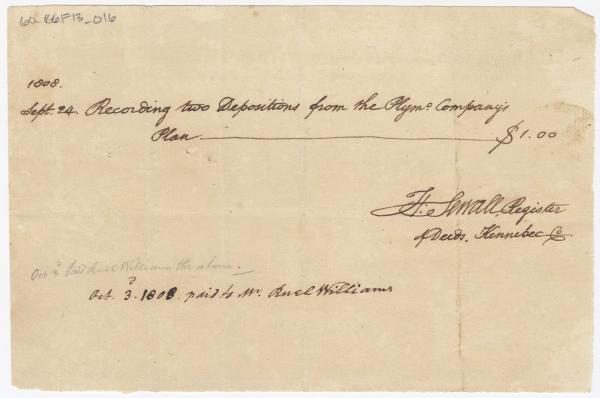 60-B6F13-016
1808.
Sept. 24. Recording two Depositions from the Plymo. Company's
Plan $1.00
H. Sewall, Register
of Deeds, Kennebec Co
Oct 3d Paid Ruel Williams the above.
Oct. 3d. 1808. paid to Mr. Ruel Williams